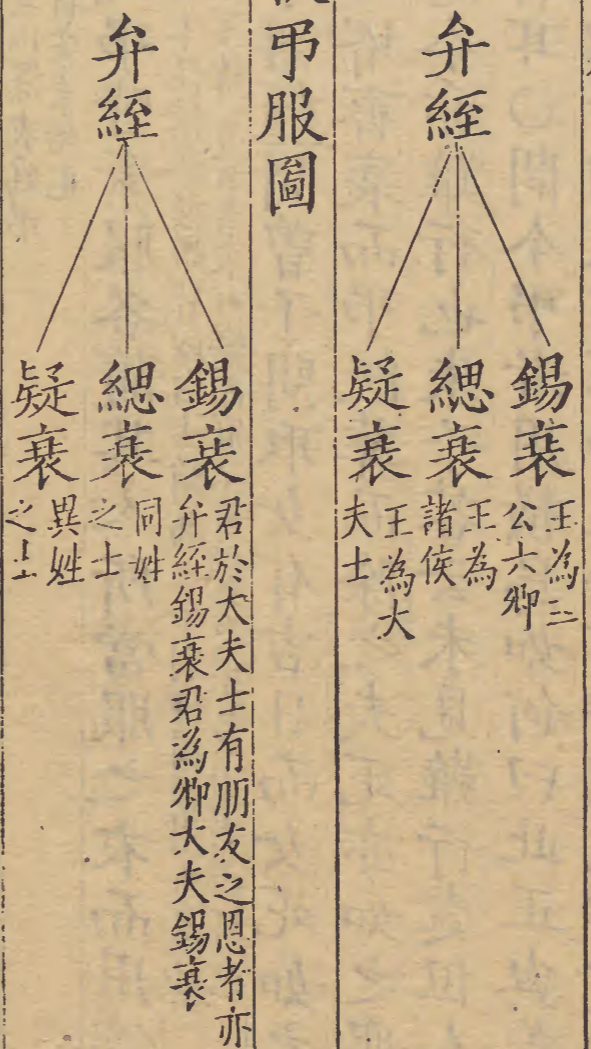 弁絰
錫衰
王為三
公六卿
緦衰
王為
諸侯
疑衰
王為大
夫士
弔服圖
弁絰
錫衰
君於大夫士有朋友之恩者亦
弁絰錫衰君為卿大夫錫衰
緦衰
同姓
之士
疑衰
異姓
之士